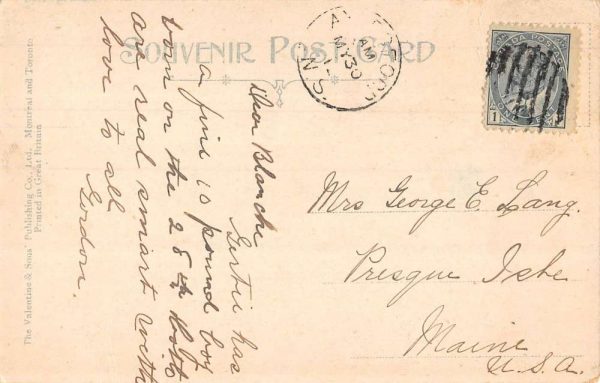 SOUVENIR POST CARD
AM
MY 30
N.S.
Dear Blanche
Gertie has
a fine 10 pound boy
born on the 28th both
are real smart with
love to all
Gordon.
Mrs George E. Lang.
Presque Isle
Maine
U.S.A.
The Valentine & Sons' Publishing Co., Ltd., Montreal and Toronto
Printed in Great Britain